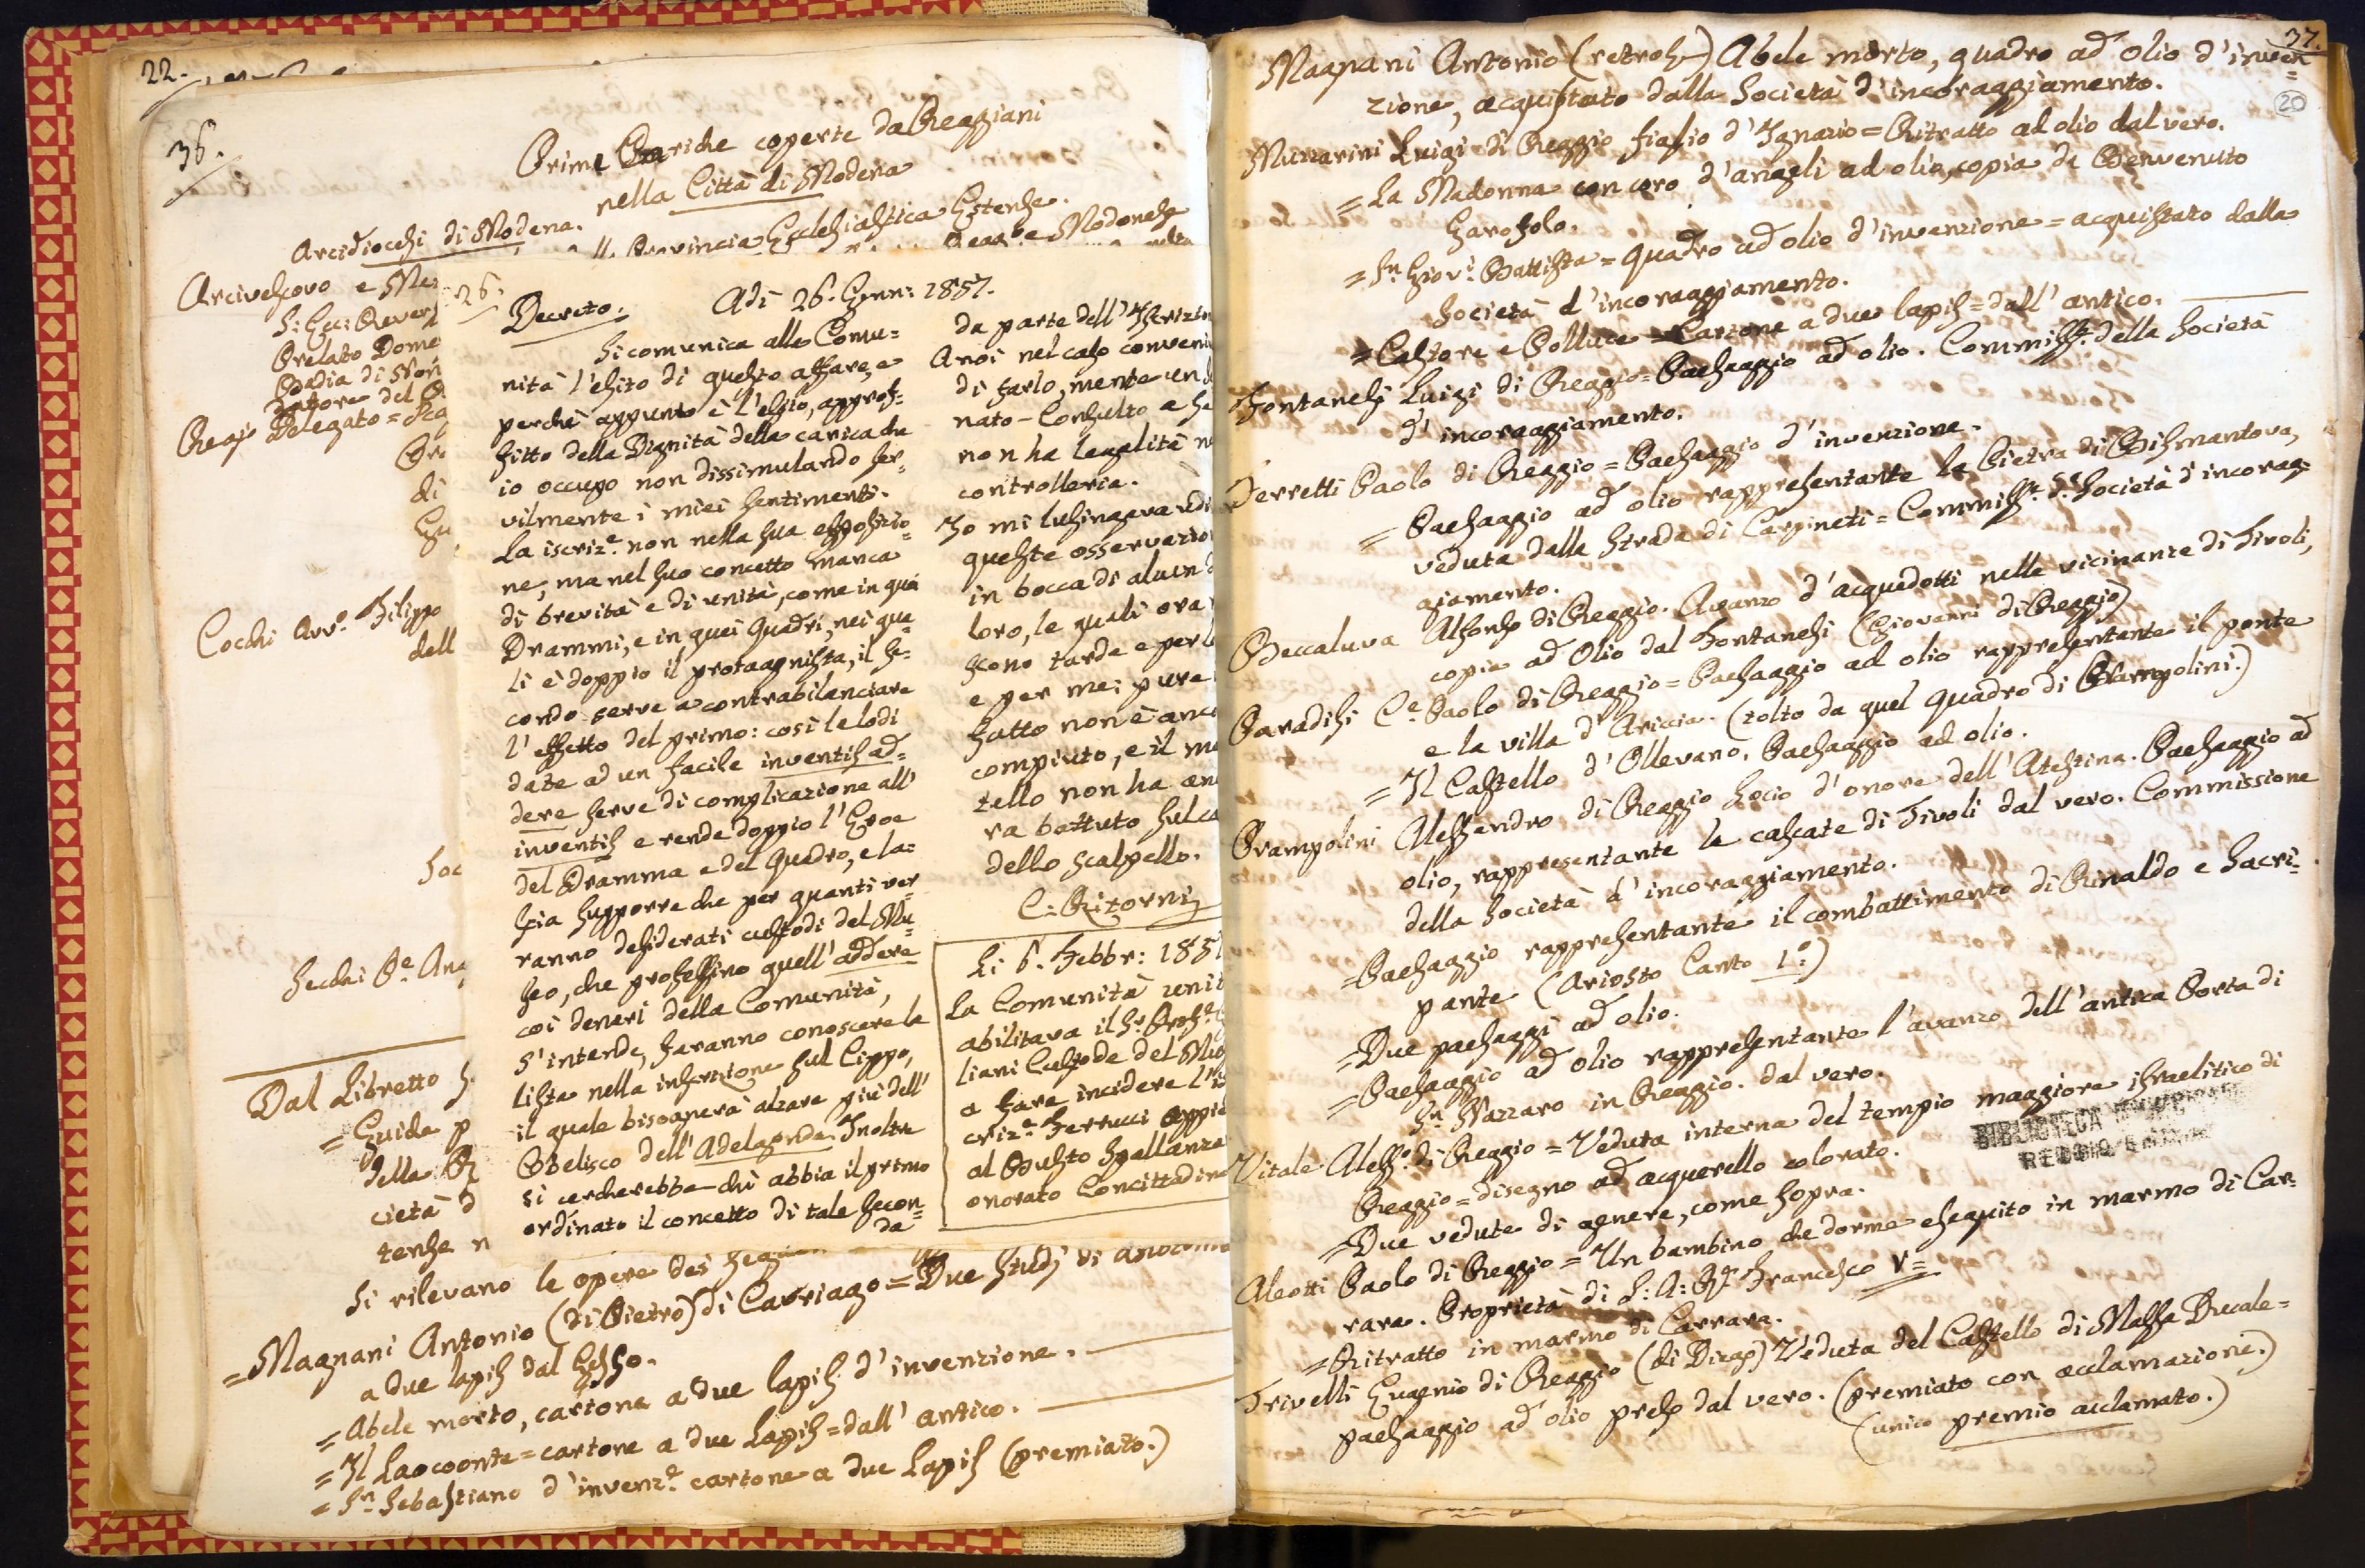 22.
36.
Prime Cariche coperte da Reggiani
nella Città di Modena
Arcidiocesi di Modena.
Provincia Ecclesiastica Estense.
Arcivescovo e
Prelato Dome
Badia di Non
Delegato =
di
Cocchi Avv.o Filippo
dell
Soc
Secchi
Dal Libretto
= Guida p
della
cietà d
tense n
Si rilevano le opere dei
= Magnani Antonio (di Pietro) di Cavriago = Due studj di
a due lapis dal gesso.
= Abele morto, cartone a due lapis d'invenzione.
= Il Laocoonte = cartone a due lapis = dall'antico.
= Sn Sebastiano d'invenz.e cartone a due lapis (premiato.)
26.
Decreto: Adì 26. Genn: 1857.
Si comunica alla Comu=
nità l'esito di questo affare, e
perchè appunto è l'esito, approf=
fitto della Dignità della carica che
io occupo non dissimulando ser=
vilmente i miei sentimenti.
La iscriz.e non nella sua esposizio=
ne, ma nel suo concetto manca
di brevità e di unità, come in quei
Drammi, e in quei Quadri, nei qua
li è doppio il protagonista, il se=
condo serve a contrabilanciare
l'effetto del primo: così le lodi
date ad un facile inventis ad=
dere serve di complicazione all'
inventis e rende doppio l'Eroe
del Dramma e del Quadro, e la=
scia supporre che per quanti ver
ranno desiderati custodi del Mu=
seo, che professino quell'addere
coi denari della Comunità,
s'intende, faranno conoscere la
lista nella inserzione sul Cippo,
il quale bisognerà alzare più dell'
Obelisco dell'Adelaonda. Inoltre
si cercherebbe chi abbia il primo
ordinato il concetto di tale secon=
da
da parte dell'Iscrizio
A noi nel caso conveni
di farlo, mente un
nato - Consulto a
non ha legalità
controlleria.
Io mi lusingava
queste osservazio
in bocca di
loro, le quali ora
scono tarde e per
e per me; pure
fatto non è anc
compiuto, e il
tello non ha an
ra battuto sul ca
dello scalpello.
C: Ritorni
Li 6. Febbr: 185
La Comunità
abilitava il Sr. Prof.r
liani Custode del Mus
a fare incidere l'i
criz.e Ferrucci appiè
al Busto Spallanza
onorato Concittadino
37.
20
Magnani Antonio (retros.) Abele morto, quadro ad olio d'inven=
zione, acquistato dalla Società d'incoraggiamento.
Muzzarini Luigi di Reggio figlio d'Ignazio = Ritratto ad olio dal vero.
= La Madonna con coro d'angeli ad olio, copia da Benvenuto
Garofolo.
= Sn Giov: Battista = Quadro ad olio d'invenzione = acquistato dalla
Società d'incoraggiamento.
= Castore e Polluce = Cartone a due lapis = dall'antico.
Fontanesi Luigi di Reggio = Paesaggio ad olio. Commiss.e della Società
d'incoraggiamento.
Ferretti Paolo di Reggio = Paesaggio d'invenzione.
= Paesaggio ad olio rappresentante la Pietra di Bismantova,
veduta dalla strada di Carpineti = Commiss.e d.a Società d'incorag=
giamento.
Beccaluva Alfonso di Reggio. Avanzo d'acquedotti nelle vicinanze di Tivoli,
copia ad Olio dal Fontanesi (Giovanni di Reggio)
Paradisi C.e Paolo di Reggio = Paesaggio ad olio rappresentante il ponte
e la villa d'Ariccia. (tolto da quel quadro di Prampolini.)
= Il Castello d'Ollevano. Paesaggio ad olio.
Prampolini Alessandro di Reggio socio d'onore dell'Atestina. Paesaggio ad
olio, rappresentante le cascate di Tivoli dal vero. Commissione
della Società d'incoraggiamento.
= Paesaggio rappresentante il combattimento di Rinaldo e Sacri=
pante (Ariosto Canto 1.o)
= Due paesaggi ad olio.
= Paesaggio ad olio rappresentante l'avanzo dell'antica Porta di
Sn Nazzaro in Reggio. dal vero.
Vitale Aless.o di Reggio = Veduta interna del tempio maggiore israelitico di
Reggio = disegno ad acquerello colorato.
= Due vedute di genere, come sopra.
BIBLIOTECA MUNICIPALE
REGGIO EMILIA
Aleotti Paolo di Reggio = Un bambino che dorme eseguito in marmo di Car=
rara. Proprietà di S: A: R. Francesco V =
= Ritratto in marmo di Carrara.
Trivelli Eugenio di Reggio (di Diego) Veduta del Castello di Massa Ducale =
paesaggio ad olio preso dal vero. (premiato con acclamazione.)
(unico premio acclamato.)